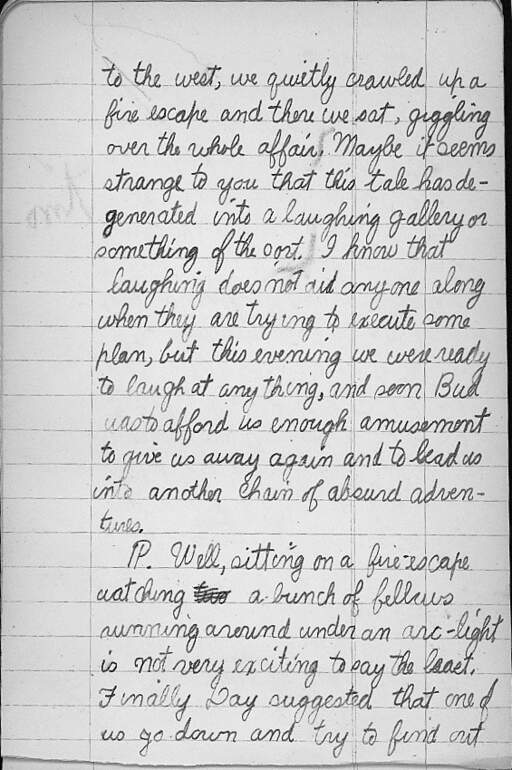 to the west, we quietly crawled up a
fire escape and there we sat, giggling
over the whole affair. Maybe it seems
strange to you that this tale has de-
generated into a laughing gallery or
something of the sort. I know that
laughing does not aid anyone along
when they are trying to execute some
plan, but this evening we were ready
to laugh at anything, and soon Bud
was to afford us enough amusement
to give us away again and to lead us
into another chain of absurd adven-
tures.
P. Well, sitting on a fire-escape
watching a bunch of fellows
running around under an arc-light
is not very exciting to say the least.
Finally Day suggested that one of
us go down and try to find out